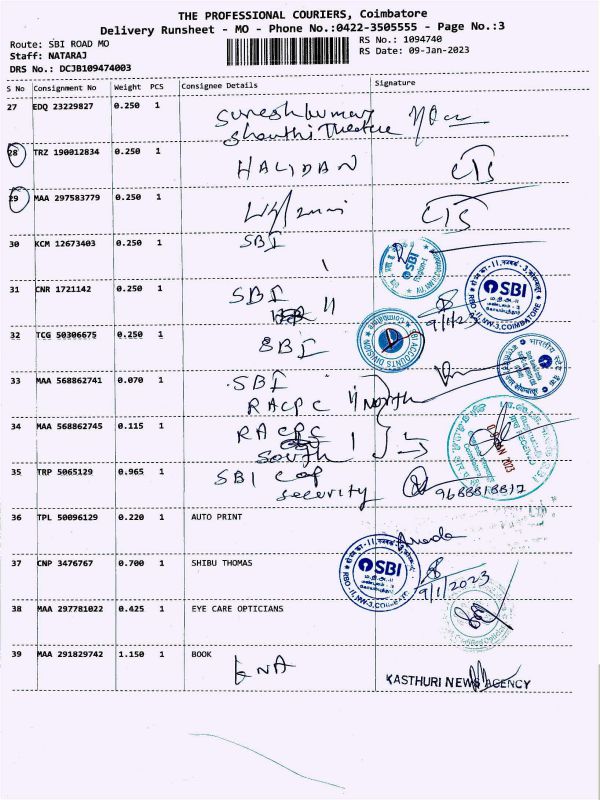 THE PROFESSIONAL COURIERS, Coimbatore
Delivery Runsheet - MO - Phone No.:0422-3505555 - Page No.:3
Route: SBI ROAD MO
RS No.: 1094740
Staff: NATARAJ
RS Date: 09-Jan-2023
DRS No.: DCJB109474003
S No Consignment No Weight PCS Consignee Details Signature
27 EDQ 23229827 0.250 1 Sureshkumar
Shanthi Theatre
28 TRZ 190012834 0.250 1 HALIDAN CTS
29 MAA 297583779 0.250 1 CTS
30 KCM 12673403 0.250 1 SBI
SBI
31 CNR 1721142 0.250 1 SBI
SBI
RBO-II, NW-3, COIMBATORE
9/1/23
32 TCG 50306675 0.250 1 SBI
ACCOUNTS DIVISION
33 MAA 568862741 0.070 1 SBI
RACPC North
34 MAA 568862745 0.115 1 RACPC
South
JAN 2023
35 TRP 5065129 0.965 1 SBI cap
security 9688818817
36 TPL 50096129 0.220 1 AUTO PRINT
37 CNP 3476767 0.700 1 SHIBU THOMAS
SBI
9/1/2023
38 MAA 297781022 0.425 1 EYE CARE OPTICIANS
39 MAA 291829742 1.150 1 BOOK
KNA
KASTHURI NEWS AGENCY